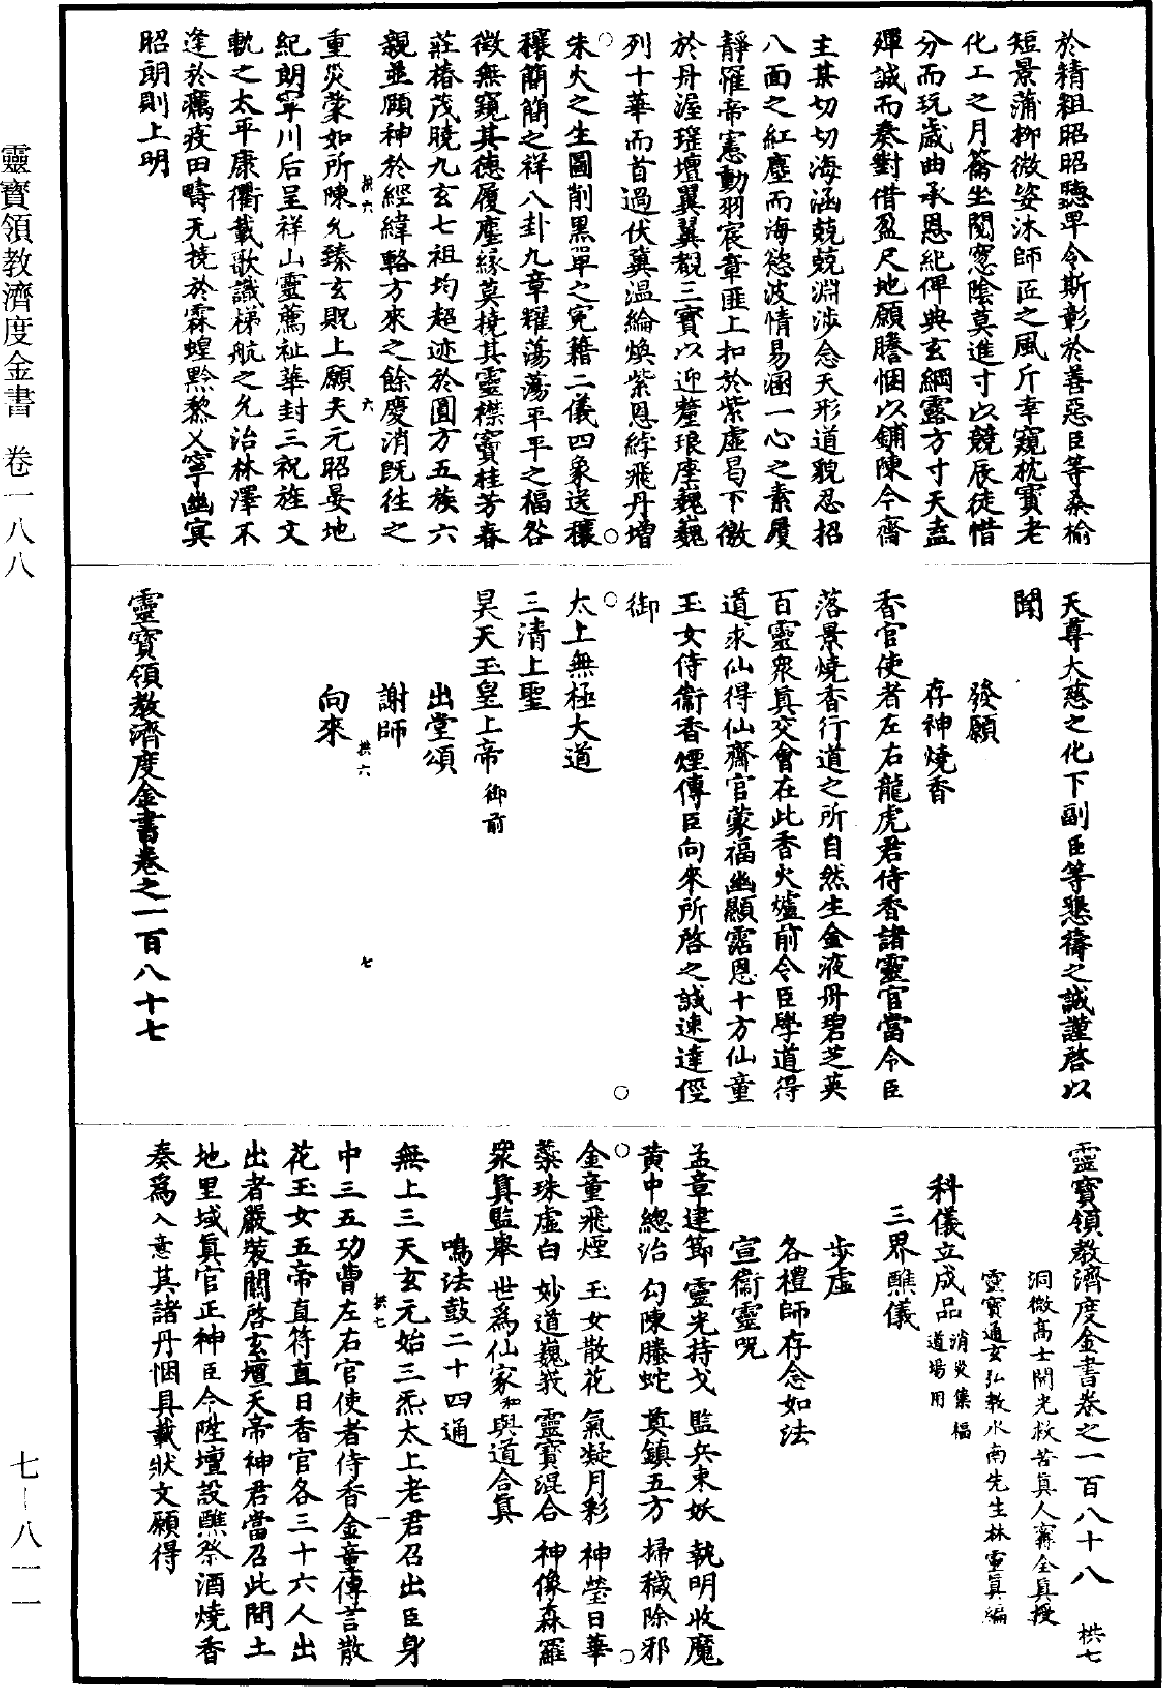 於精粗昭昭聽卑令斯彰於善惡臣等桑榆
短景蒲柳微姿沐師匠之風斤幸窺枕寶老
化工之月籥坐閱窓陰莫進寸以競辰徒惜
分而玩歲曲承恩紀俾典玄綱露方寸天盍
殫誠而奏對借盈尺地願謄悃以鋪陳今齋
主某切切海涵兢兢淵涉念天形道貌忍招
八面之紅塵而海慾波情易溷一心之素履
靜罹帝憲動羽宸章匪上扣於紫虛曷下徼
於丹渥璀壇翼翼覩三寶以迎釐琅座巍巍
列十華而首過伏冀溫綸煥紫恩綍飛丹增
朱火之生圖削黑單之寃籍二儀四象送穰
穰簡簡之祥八卦九章耀蕩蕩平平之福咎
徵無窺其德履塵緣莫撓其靈襟竇桂芳春
莊椿茂曉九玄七祖均超迹於圓方五族六
親並願神於經緯輅方來之餘慶消既往之
重災蒙如所陳允臻玄貺上願天元昭晏地
紀朗寧川后呈祥山靈薦祉華封三祝旌文
軌之太平康衢載歌識梯航之允治林澤不
逢於癘疫田疇无撓於霖蝗黔黎乂寧幽冥
昭朗則上明
天尊大慈之化下副臣等懇禱之誠謹啓以
聞
發願
存神燒香
香官使者左右龍虎君侍香諸靈官當令臣
落景燒香行道之所自然生金液丹碧芝英
百靈衆眞交會在此香火爐前令臣學道得
道求仙得仙齋官蒙福幽顯霑恩十方仙童
玉女侍衞香煙傳臣向來所啓之誠速達徑
御
太上無極大道
三清上聖
昊天玉皇上帝 御前
出堂頌
謝師
向來
靈寶領教濟度金書卷之一百八十七
靈寶領教濟度金書卷之一百八十八 栱七
洞微高士開光救苦眞人甯全眞授
靈寶通玄弘教水南先生林靈眞編
科儀立成品 消災集福道場用
三界醮儀
步虛
各禮師存念如法
宣衞靈呪
孟章建節 靈光持戈 監兵束妖 執明收魔
黃中總治 勾陳螣蛇 奠鎮五方 掃穢除邪
金童飛煙 玉女散花 氣凝月彩 神瑩日華
蘂珠虛白 妙道巍峩 靈寶混合 神像森羅
衆眞監舉 世爲仙家 和與道合眞
鳴法鼓二十四通
無上三天玄元始三炁太上老君召出臣身
中三五功曹左右官使者侍香金童傳言散
花玉女五帝直符直日香官各三十六人出
出者嚴裝關啓玄壇天帝神君當召此間土
地里域眞官正神臣今陞壇設醮祭酒燒香
奏爲入意其諸丹悃具載狀文願得
靈寶領教濟度金書 卷一八八
七—八一一